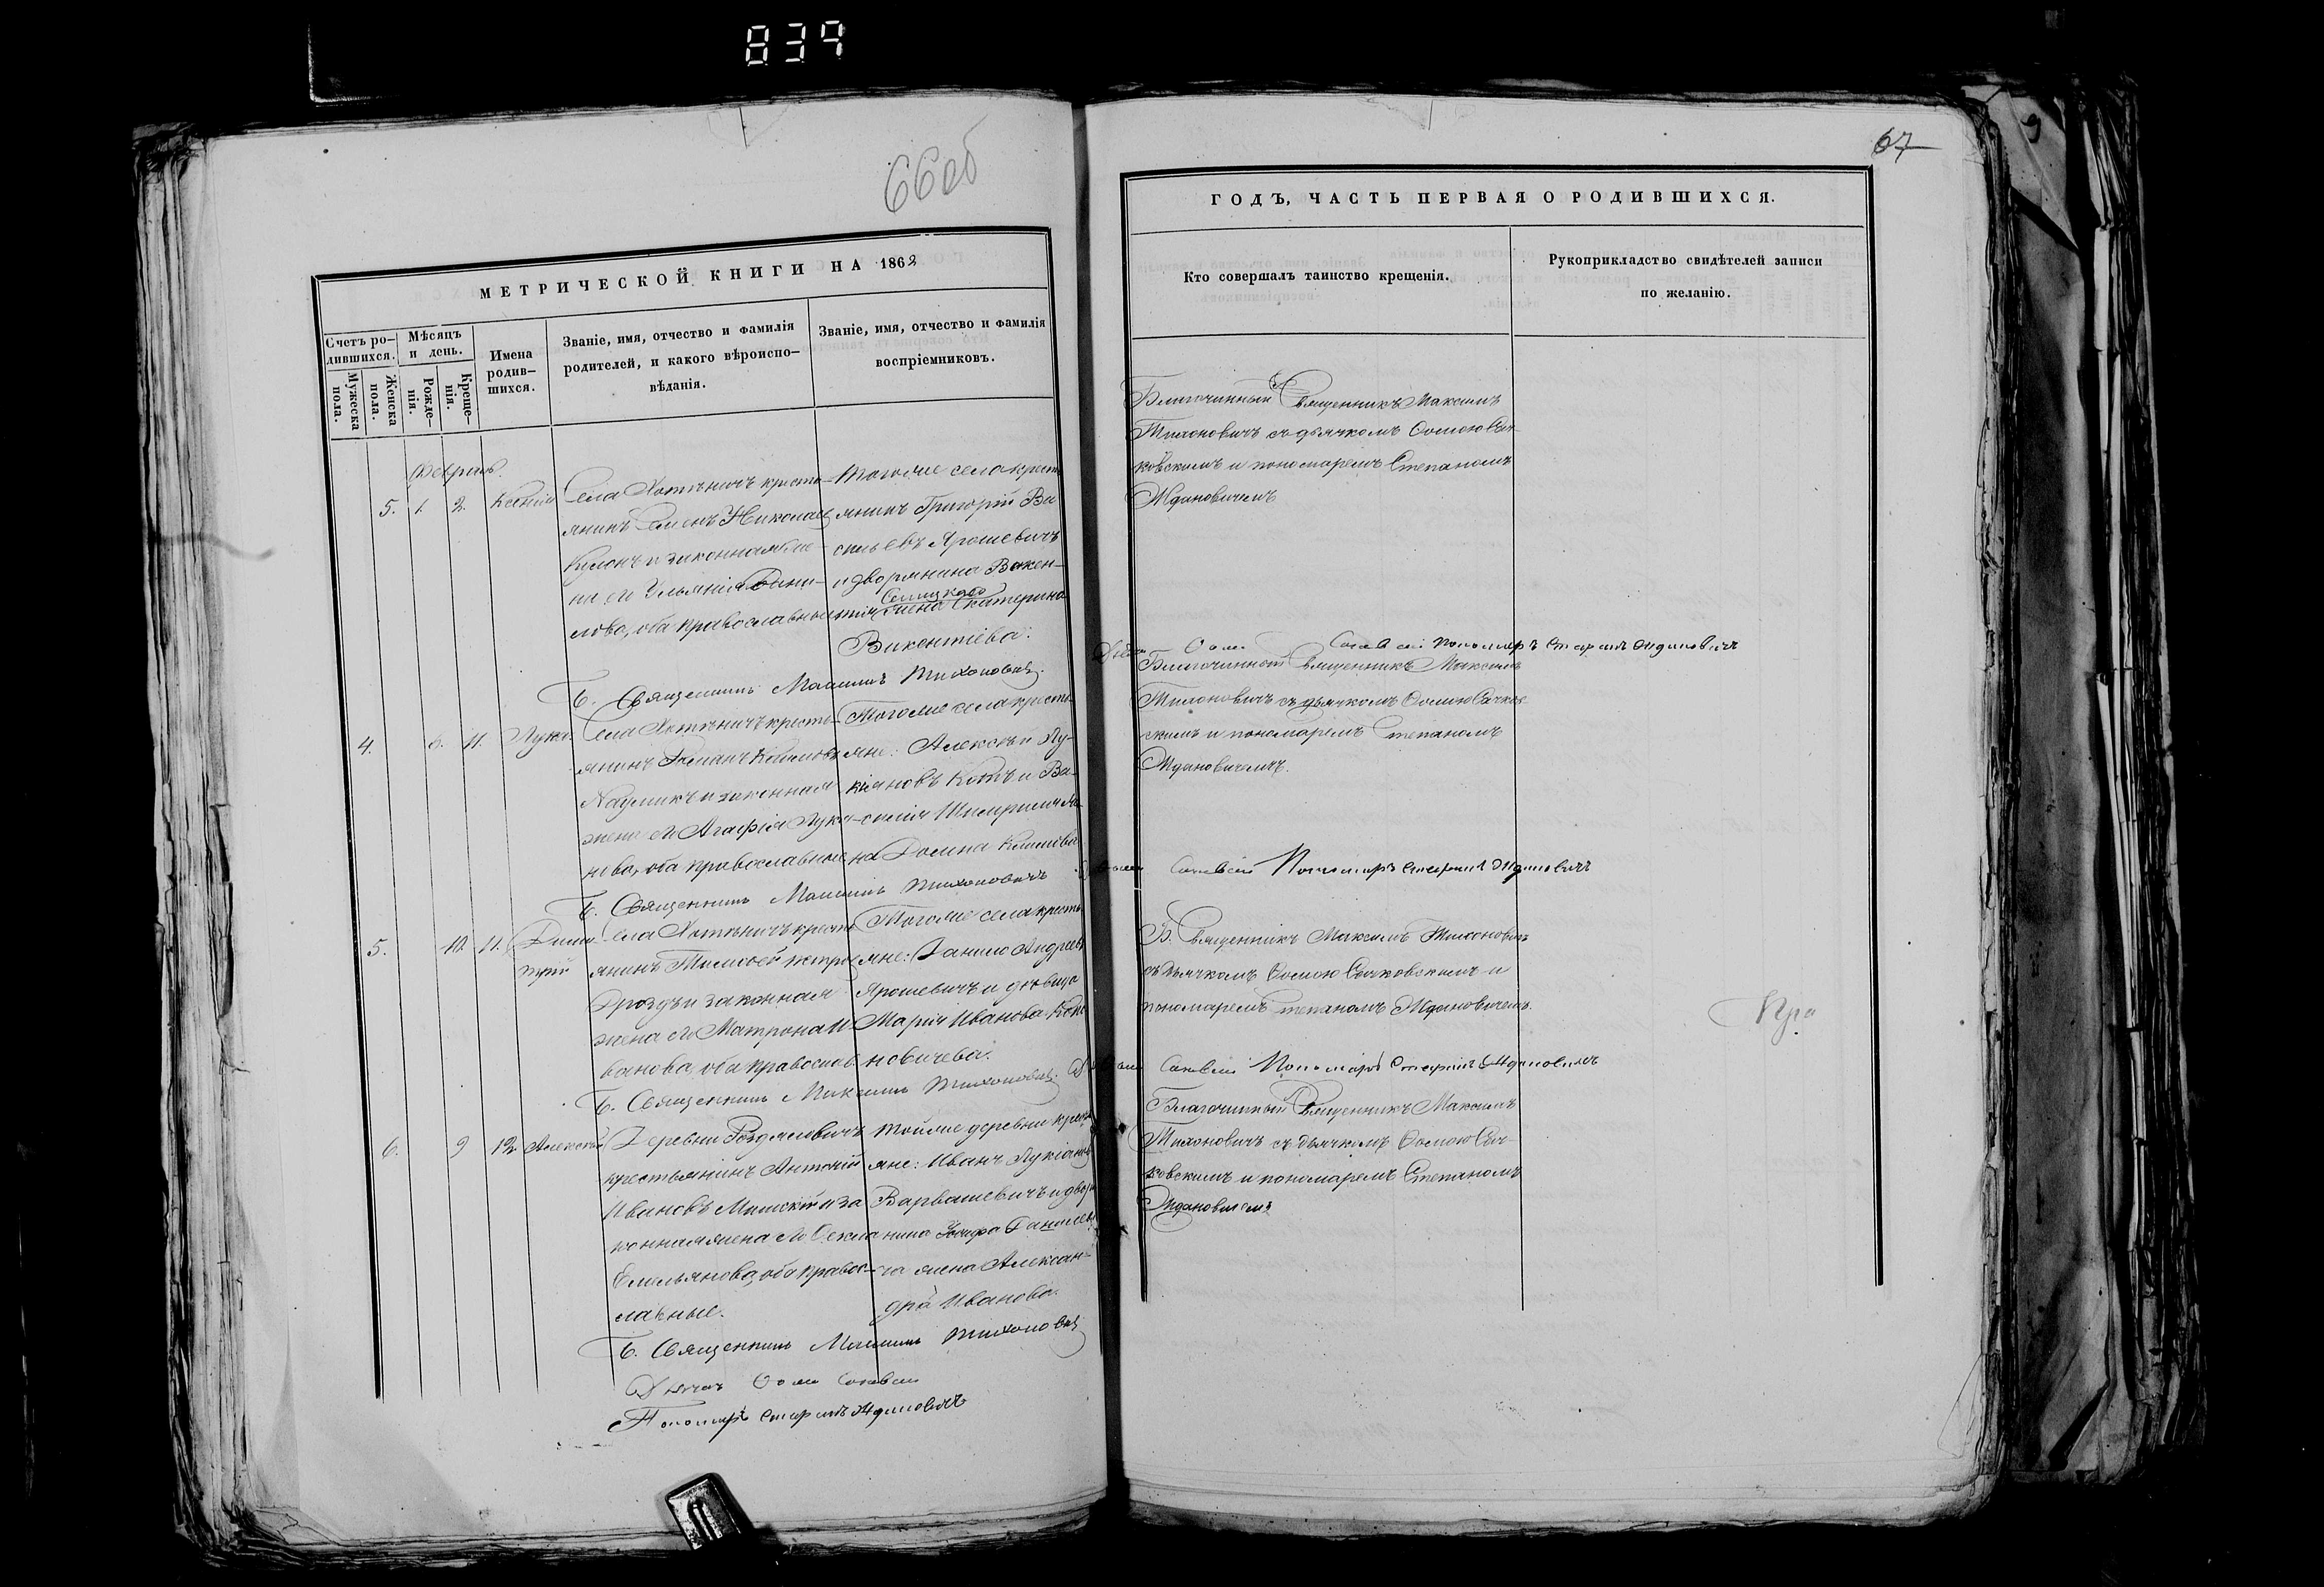 839
66 об
МЕТРИЧЕСКОЙ КНИГИ НА 1862
Счетъ ро-
дившихся.
Мужеска
пола.
Женска
пола.
Мѣсяцъ
и день.
Рожде-
нія.
Креще-
нія.
Имена
родив-
шихся.
Званіе, имя, отчество и фамилія
родителей, и какого вѣроиспо-
вѣданія.
Званіе, имя, отчество и фамилія
воспріемниковъ.
Февраль.
5. 1. 2. Ксенія
Села Хотыничъ кресть-
янинъ Семенъ Николаев
и законная же-
на его Ульянія Дани-
лова, оба православные
Тогоже села кресть
янинъ Григорій Ва
сильевъ Ярошевичъ
и дворянина Викен-
тія жена Екатерина
Викентіева.
Б. Священникъ Максимъ Тихоновичъ
4. 6. 11. Лука
Села Хотыничъ кресть-
янинъ
Наумикъ и законная
жена его Агафія Лукья
нова, оба православные
Тогоже села кресть
яне: Алексѣй Лу-
кіяновъ Котъ и Ва-
силія
на Домна
Б. Священникъ Максимъ Тихоновичъ
5. 10. 11. Дими
трій
Села Хотыничъ кресть
янинъ Тимофей Петров
Дроздъ и законная
жена его Матрона И
ванова, оба православ
Тогоже села кресть
яне: Данило Андреев
Ярошевичъ и дѣвица
Марія Иванова Коно
новичева.
Б. Священникъ Максимъ Тихоновичъ
6. 9 12 Алексѣй
Деревни Раздяловичъ
крестьянинъ Антоній
Ивановъ и за
конная жена его Фекла
Емельянова, оба право-
славные.
Тойже деревни крест
яне: Иванъ Лукіановъ
Варвашевичъ и дворя
нина
жена Алексан-
дра Иванова.
Б. Священникъ Максимъ Тихоновичъ
Дьячекъ Фома
Пономарь Стефанъ Ждановичъ
67
ГОДЪ, ЧАСТЬ ПЕРВАЯ О РОДИВШИХСЯ.
Кто совершалъ таинство крещенія.
Рукоприкладство свидѣтелей записи
по желанію.
Благочинный Священникъ Максимъ
Тихоновичъ съ дьячкомъ Фомою Сач-
ковскимъ и пономаремъ Степаномъ
Ждановичемъ
Пономарь Стефанъ Ждановичъ
Благочинный Священникъ Максимъ
Тихоновичъ съ дьячкомъ Фомою Сачков
скимъ и пономаремъ Степаномъ
Ждановичемъ.
Пономарь Стефанъ Ждановичъ
Б. Священникъ Максимъ Тихоновичъ
съ дьячкомъ Фомою Сачковскимъ и
пономаремъ Степаномъ Ждановичемъ.
Пономарь Стефанъ Ждановичъ
Благочинный Священникъ Максимъ
Тихоновичъ съ дьячкомъ Фомою Сач-
ковскимъ и пономаремъ Степаномъ
Ждановичемъ
Пра